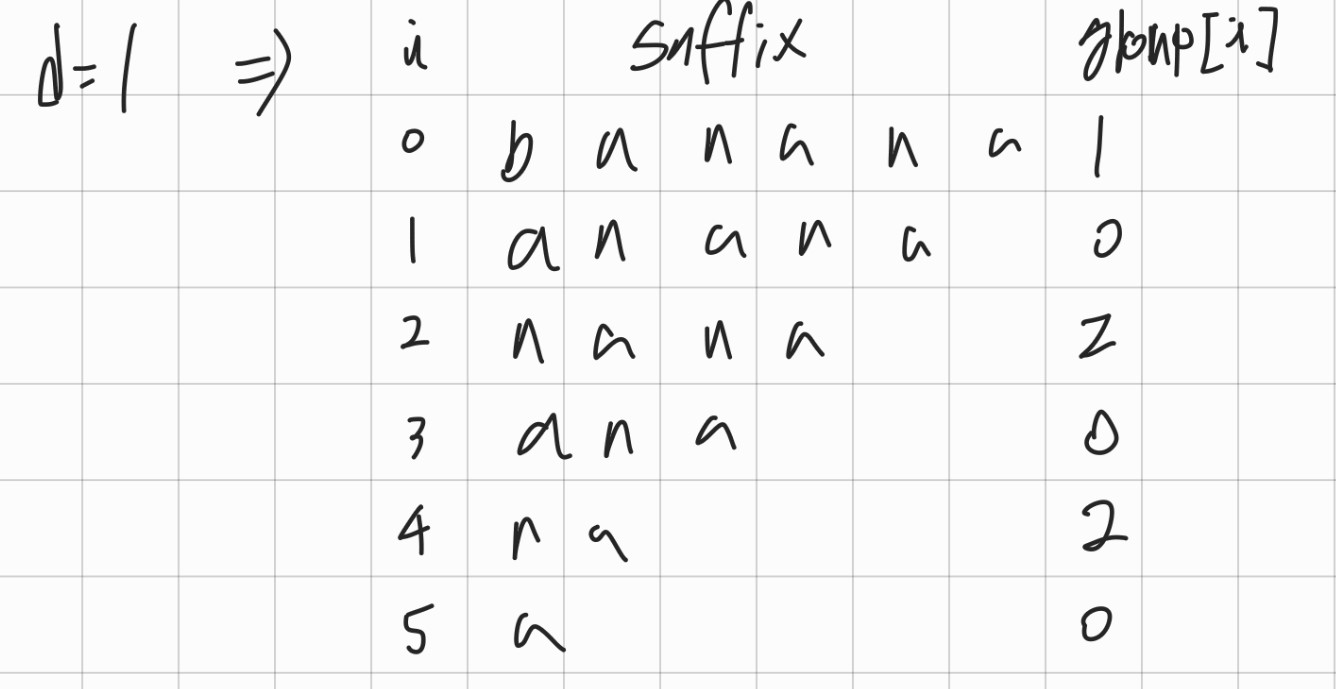 d=1 ⇒ i suffix group[i]
0 b a n a n a 1
1 a n a n a 0
2 n a n a 2
3 a n a 0
4 n a 2
5 a 0